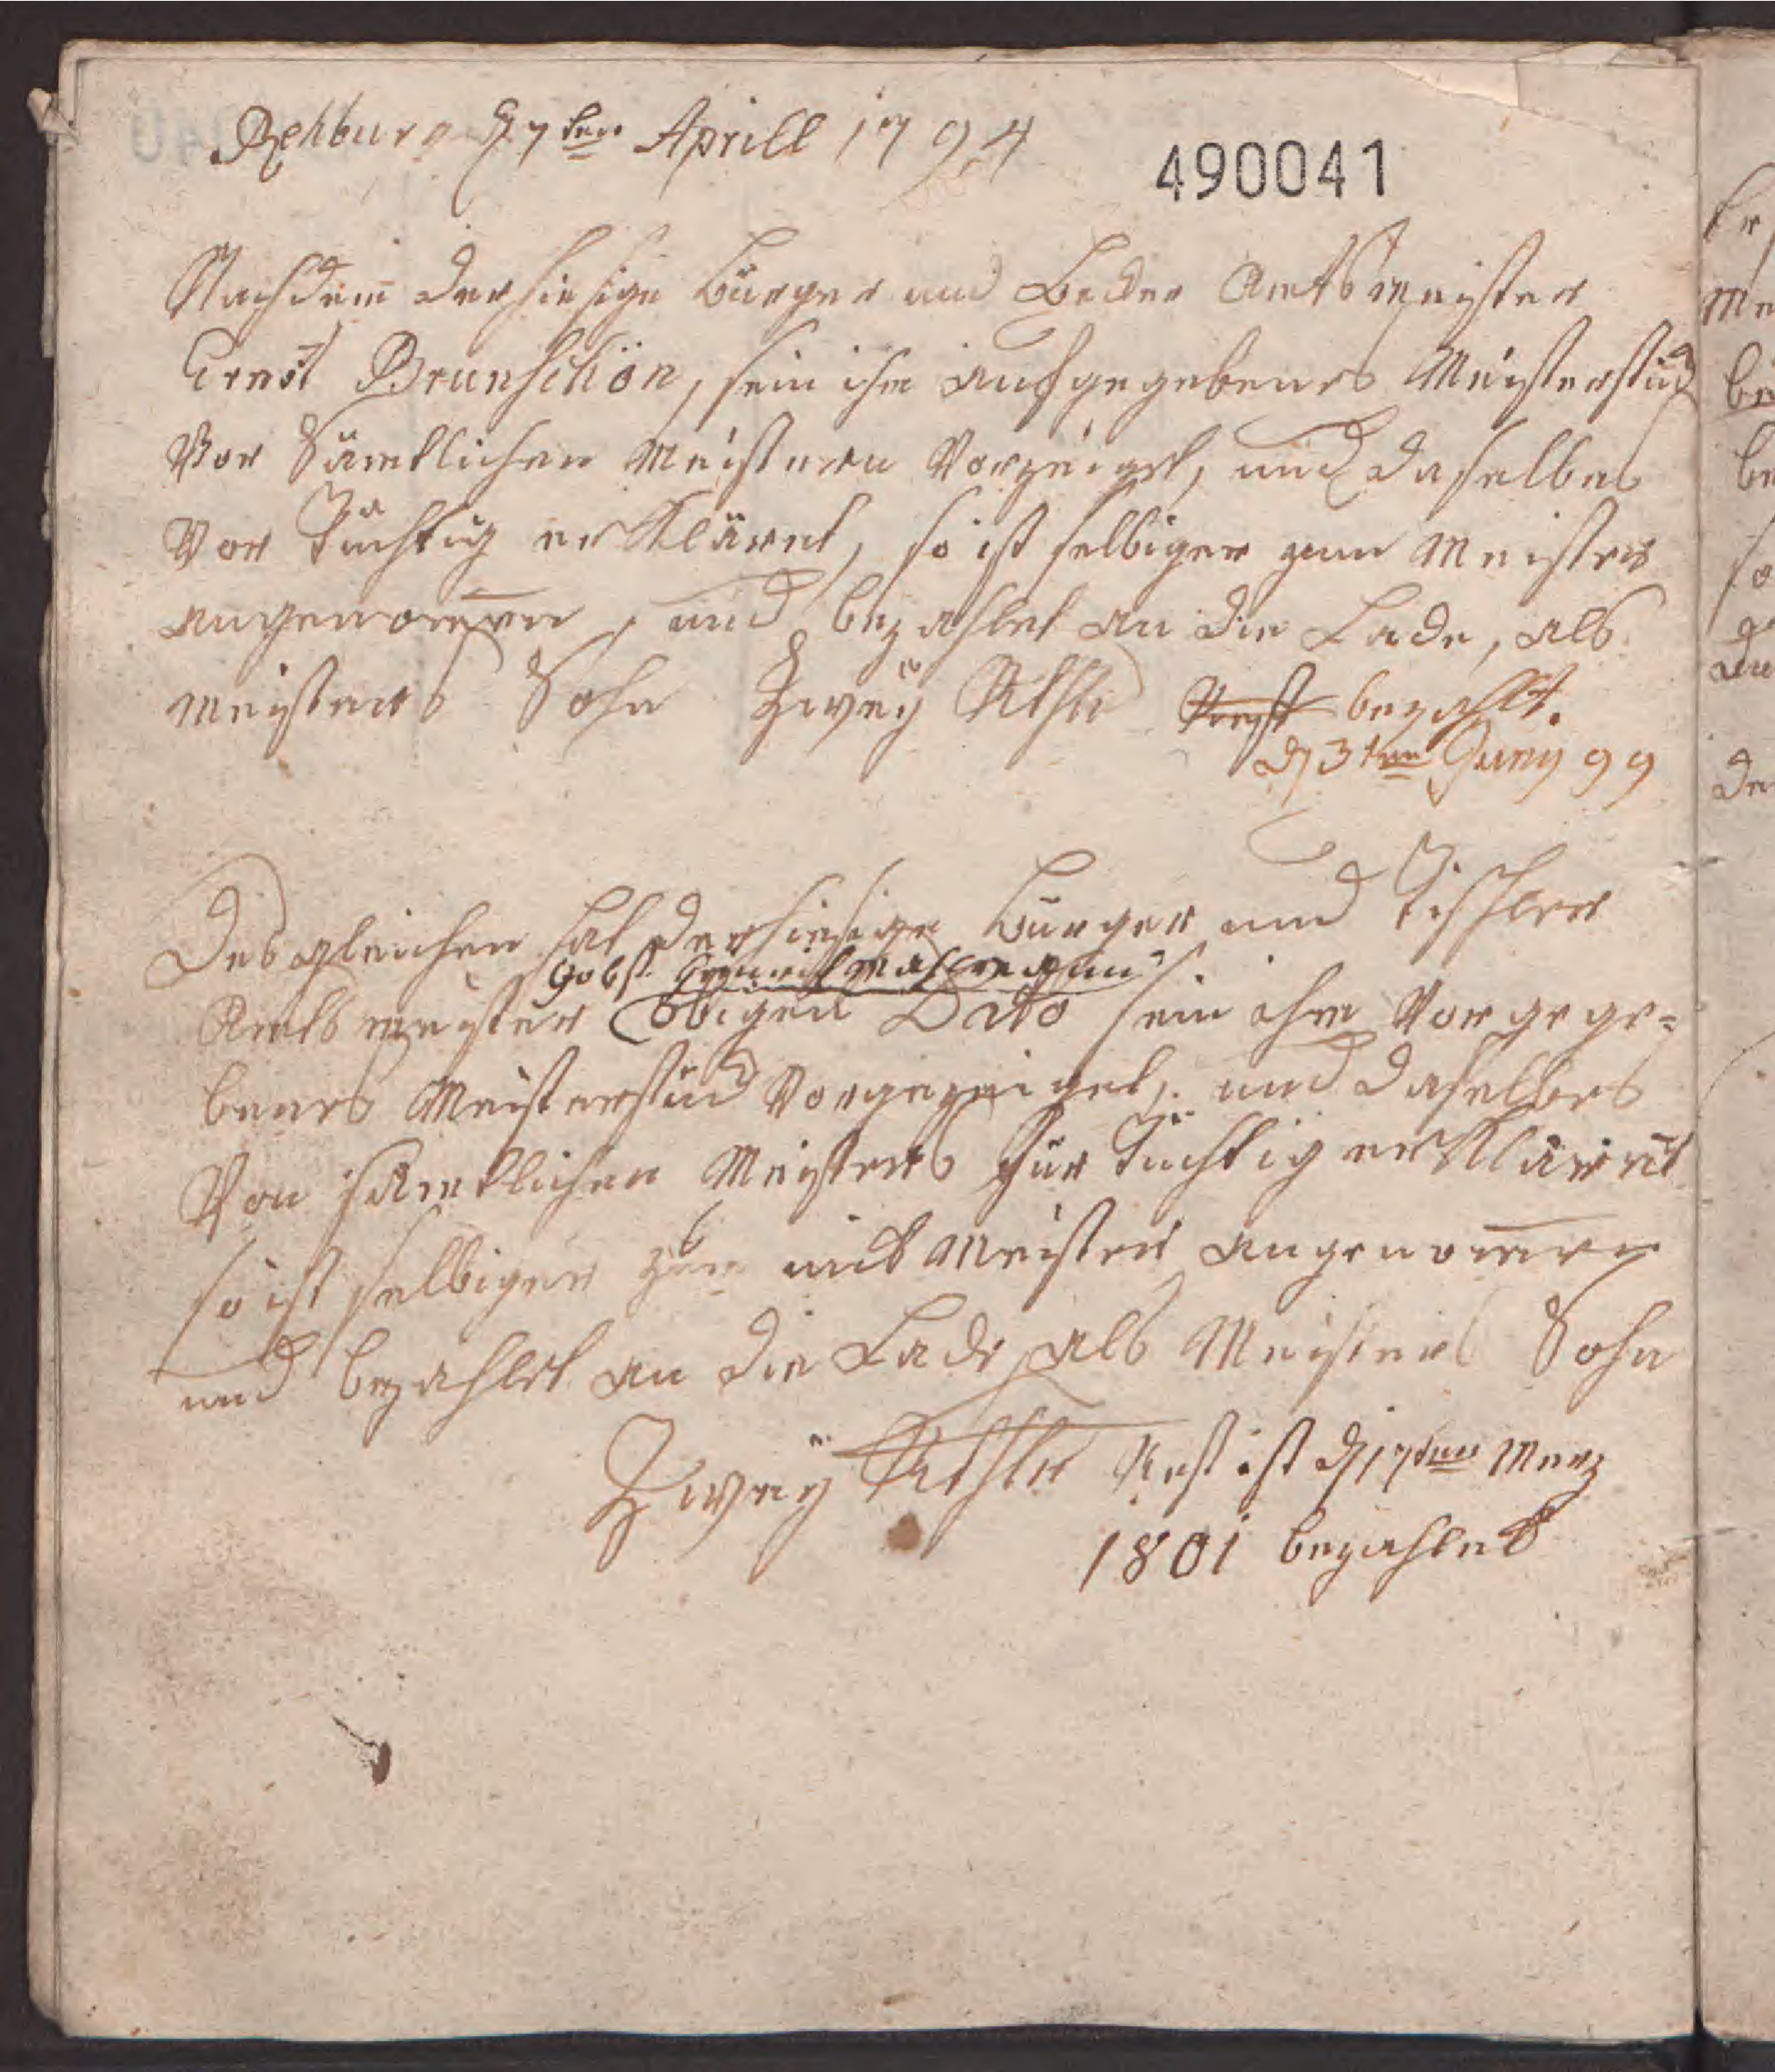 Rehburg d 7ten Aprill 1794
490041
Nachdem der hiesige Bürger und Becker Amtsmeister
Ernst Brunschön, sein ihm aufgegebenes Meisterstück
Vor Sämtlichen Meistern Vorzeiget, und daselbes
Vor Tüchtig erkläret, so ist selbiger zum Meister
angenommen, und bezahlet an die Lade, als
Meisters Sohn Zweÿ Rthlr Rest bezahlt.
d 3ten Juny 99
Desgleichen hat der hiesige Bürger und Tischler
Jobst
Amtsmeister obigen Dato sein ihm Vorgege-
benes Meisterstück Vorgezeiget, und daselbes
Von sämtlichen Meisters für Tüchtig erkläret
so ist selbiger zum mit Meister angenommen
und bezahlet an die Lade, als Meisters Sohn
Zweÿ Rthlr Rest ist d 17ten Merz
1801 bezahlet